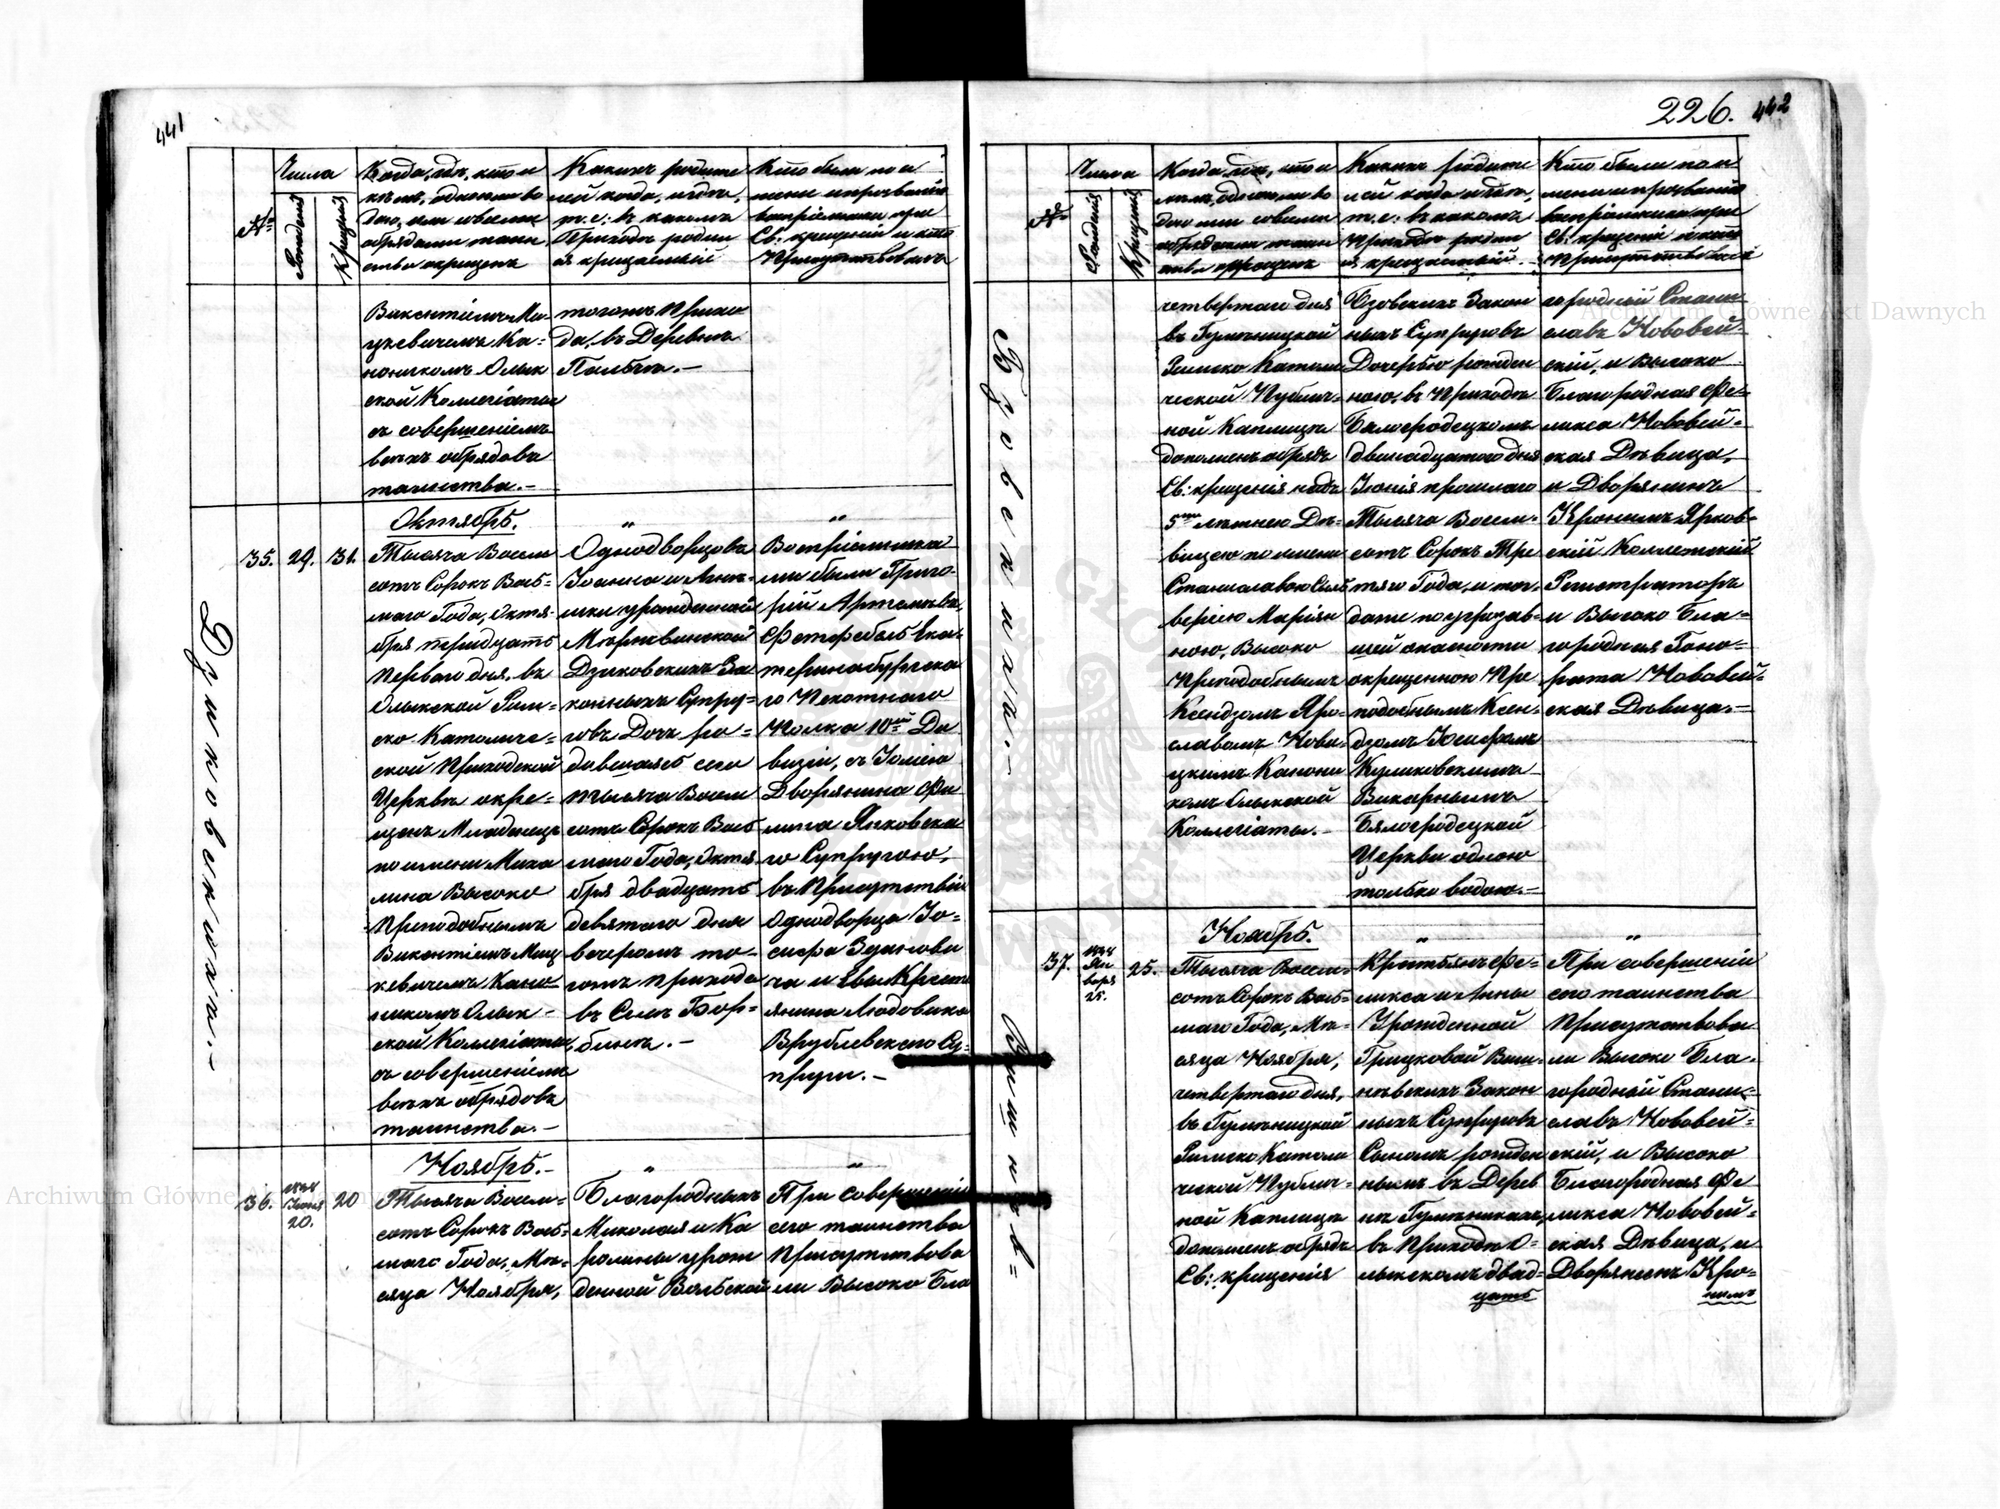 441
№
Числа
Рожденія
Крещенія
Когда, гдѣ, кто и
кѣмъ, однѣю во
дою, или со всѣми
обрядами таин
ства окрещенъ
Какихъ родите
лей когда, и гдѣ,
т. е: въ какомъ
Приходѣ родил
ся крещаемый
Кто были по и
мени и прозванію
воспріемники при
Св: крещеніи и кто
присутствовалъ
Викентіемъ Ми
цкевичемъ Ка=
ноникомъ Олык
ской Коллегіаты
съ совершеніемъ
всѣхъ обрядовъ
таинства.—
тогожъ Прихо
да, въ Деревнѣ
Дзиковскихъ.—
35. 29. 31.
Октябрь.
Тысяча Восем
сотъ Сорокъ Вось=
маго Года, Октя=
бря тридцать
Перваго дня, въ
Олыкской Рим=
ско Католиче=
ской Приходской
Церквѣ окре=
щенъ Младенецъ
по имени Миха
лина Высоко
Преподобнымъ
Викентіемъ Миц
кевичемъ Кано
никомъ Олык=
ской Коллегіаты,
съ совершеніемъ
всѣхъ обрядовъ
таинства.—
"
Однодворцовъ
Іоанна и
урожденной
Дзиковскихъ За
конныхъ Супру=
говъ Дочь ро=
дившаяся сего
тысяча Восем
сотъ Сорокъ Вось
маго Года, Октя
бря двадцать
девятаго дня
вечеромъ то=
гожъ прихода
въ Селѣ Бор=
бинѣ.—
"
Воспріемника
ми были Григо
рій
Екатеринбургска
го Пѣхотнаго
Полка 10й Ди
визіи, съ
Дворянина Фи
липа Янковска
го Супругою,
въ Присутствіи
Однодворца Іо=
сифа
ча и Евы Крест
янина Людовика
Врублевскаго Су=
пруги.—
36. 1844 Іюня 20. 20
Ноябрь.—
Тысяча Восем=
сотъ Сорокъ Вось=
маго Года, Мѣ=
сяца Ноября,
"
Благородныхъ
Николая и Ка
ролины урож
денной Вольской
"
При совершеніи
сего таинства
Присутствова
ли Высоко Бла
226. 442
№
Числа
Рожденія
Крещенія
Когда, гдѣ, кто и
кѣмъ, однѣю во
дою или со всѣми
обрядами таин
ства окрещенъ
Какихъ родите
лей когда и гдѣ,
т. е: въ какомъ
Приходѣ родил
ся крещаемый.—
Кто были по и
мени и прозванію
воспріемники при
Св: крещеніи и кто
присутствовалъ
Бзовскихъ.—
четвертаго дня
въ Гумѣницкой
Римско Католи
ческой Публич=
ной Каплицѣ
дополненъ обрядъ
Св: крещенія надъ
5ти лѣтнею Дѣ=
вицею по имени
Станиславою Силь
веріею Маріян
ною, Высоко
Преподобнымъ
Ксендзомъ Яро=
славомъ Нови=
цкимъ Канони
комъ Олыкской
Коллегіаты.—
Бзовскихъ Закон
ныхъ Супруговъ
Дочерью рожден
ною, въ Приходѣ
Бялогродецкомъ
двенадцатого дня
Іюнія прошлаго
Тысяча Восем=
сотъ Сорокъ Тре
тяго Года, и тог=
даже по угрожав=
шей опасности
окрещенною Пре
подобнымъ Ксен=
дзомъ Іосифомъ
Куликовскимъ
Викарнымъ
Бялогродецкой
Церкви одною
только водою.—
городный Стани
славъ Нововей=
скій, и Высоко
Благородная Фе=
ликса Нововей=
ская Дѣвица,
и Дворянинъ
Іеронимъ Ярков=
скій Коллежскій
Регистраторъ
и Высоко Бла=
городная Гоно=
рата Нововей=
ская Дѣвица.—
37. 1844 Января 25. 25.
Ноябрь.
Тысяча Восем=
сотъ Сорокъ Вось=
маго Года, Мѣ=
сяца Ноября,
четвертаго дня,
въ Гумѣницкой
Римско Католи
ческой Публич=
ной Каплицѣ
дополненъ обрядъ
Св: крещенія
"
Крестьянъ Фе=
ликса и Анны
Урожденной
Грицковой Виш=
невскихъ Закон
ныхъ Супруговъ
Сыномъ рожден
нымъ въ Дерев
нѣ Гумѣникахъ,
въ Приходѣ О=
лыкскомъ двад=
цать
"
При совершеніи
сего таинства
Присутствова
ли Высоко Бла=
городный Стани=
славъ Нововей=
скій, и Высоко
Благородная Фе
ликса Нововей=
ская Дѣвица, и
Дворянинъ Іеро=
нимъ
Archiwum Główne Akt Dawnych
Archiwum Główne Akt Dawnych